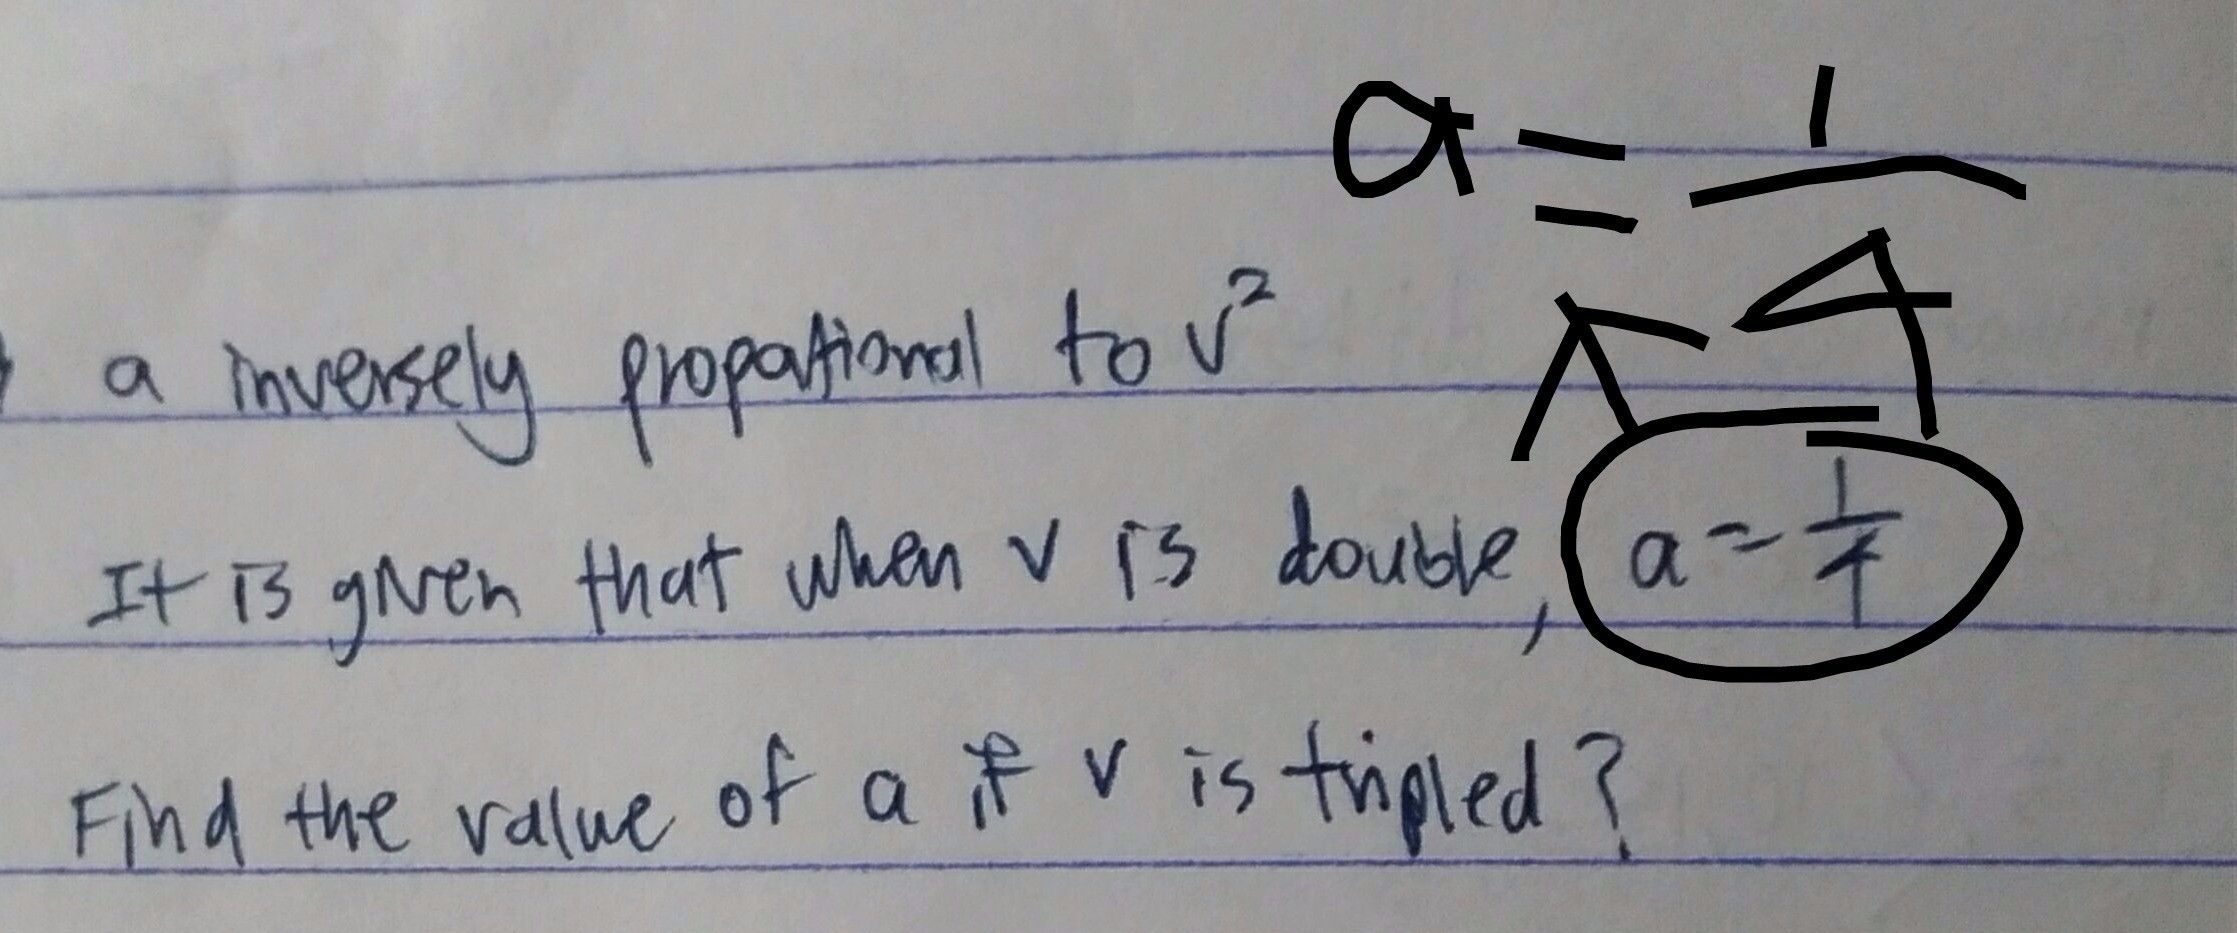 a = 1/4
a inversely propotional to v²
It is given that when v is double, a = 1/4
Find the value of a if v is tripled?